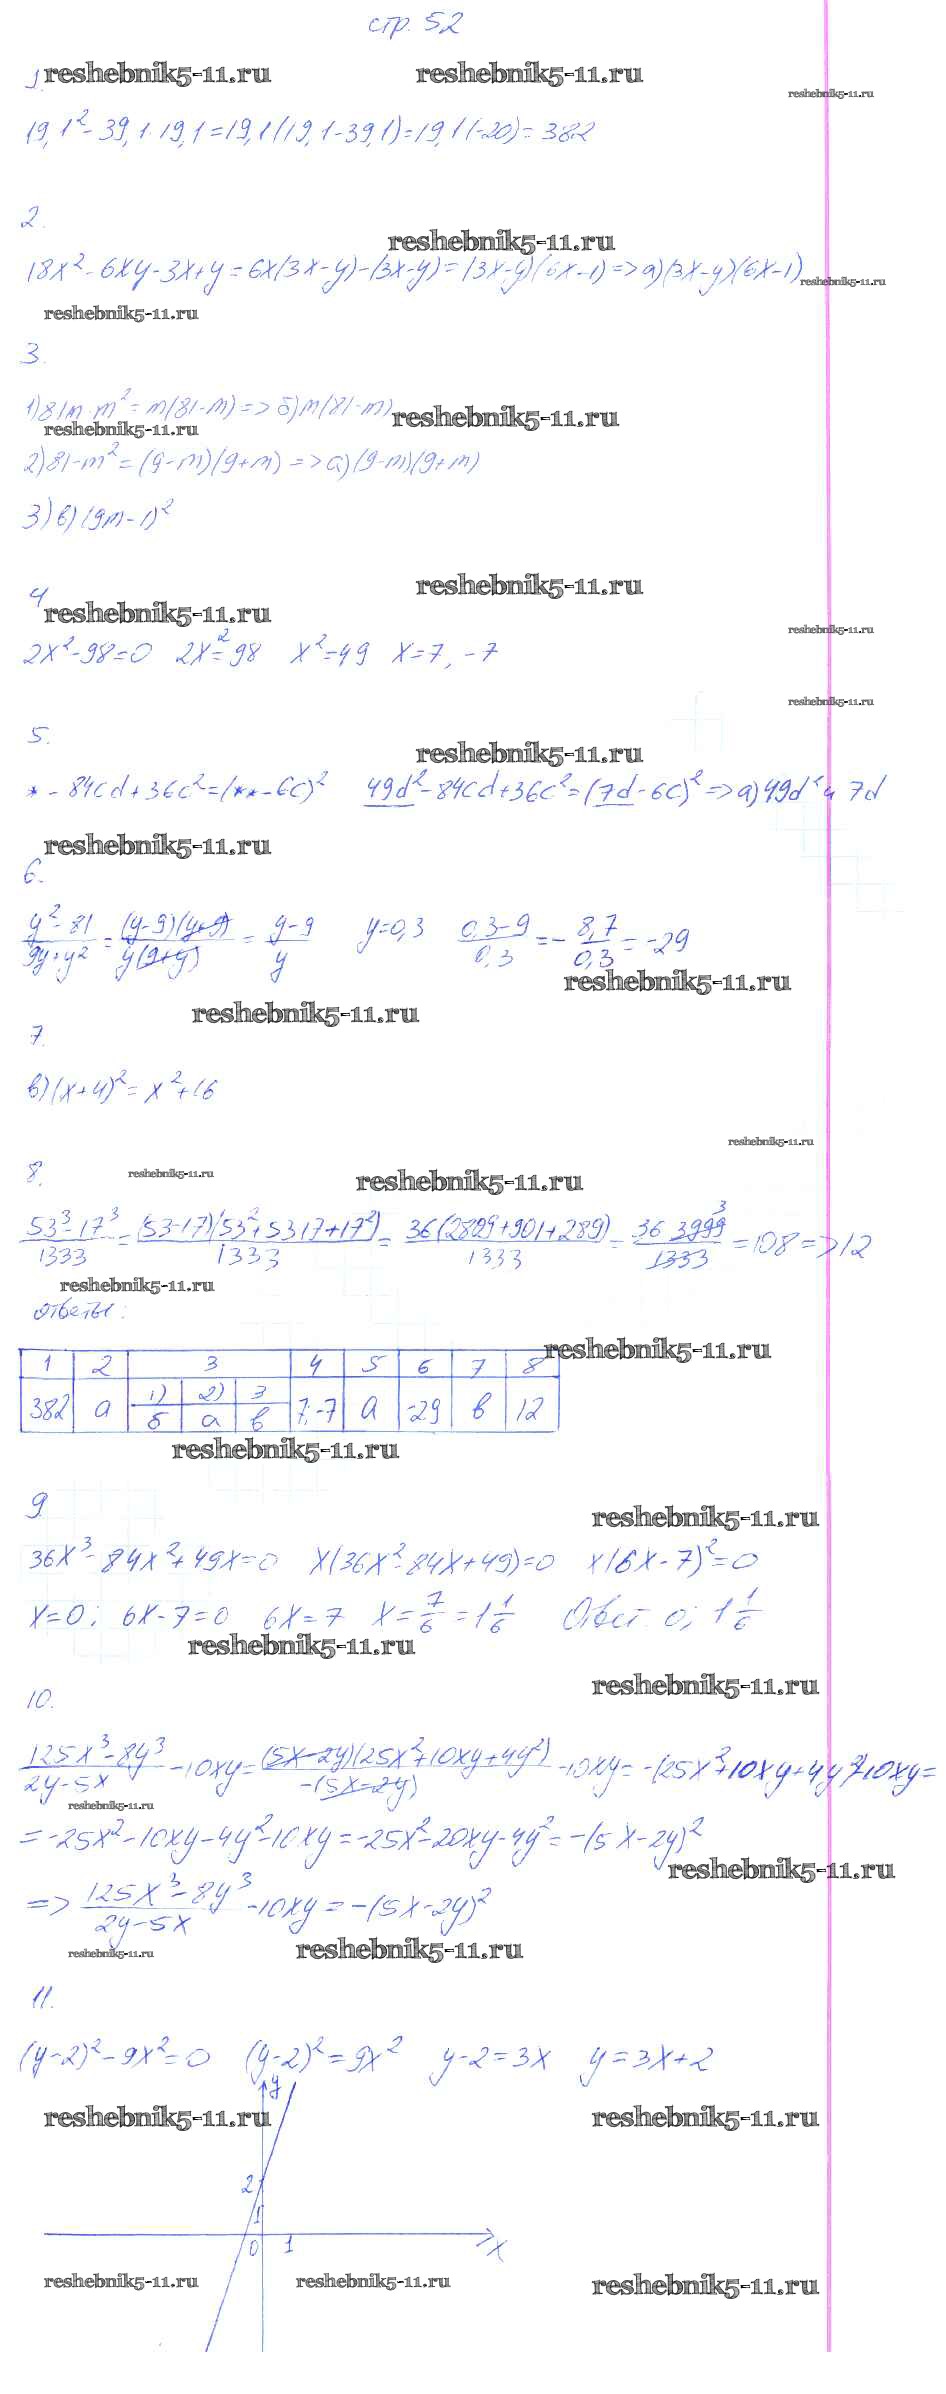 стр. 52
reshebnik5-11.ru reshebnik5-11.ru
1.
reshebnik5-11.ru
19,1² - 39,1 · 19,1 = 19,1(19,1 - 39,1) = 19,1(-20) = 382
2.
reshebnik5-11.ru
18x² - 6xy - 3x + y = 6x(3x - y) - (3x - y) = (3x - y)(6x - 1) => а)(3x - y)(6x - 1)
reshebnik5-11.ru
reshebnik5-11.ru
3.
1) 81m - m² = m(81 - m) => б) m(81 - m)
reshebnik5-11.ru
reshebnik5-11.ru
2) 81 - m² = (9 - m)(9 + m) => а)(9 - m)(9 + m)
3) в) (9m - 1)²
reshebnik5-11.ru
4
reshebnik5-11.ru
reshebnik5-11.ru
2x² - 98 = 0 2x² = 98 x² = 49 x = 7, -7
reshebnik5-11.ru
5.
reshebnik5-11.ru
* - 84cd + 36c² = (** - 6c)² 49d² - 84cd + 36c² = (7d - 6c)² => а) 49d² и 7d
reshebnik5-11.ru
6.
(y² - 81)/(9y + y²) = (y - 9)(y + 9)/y(9 + y) = (y - 9)/y y = 0,3 (0,3 - 9)/0,3 = -8,7/0,3 = -29
reshebnik5-11.ru
reshebnik5-11.ru
7.
в) (x + 4)² = x² + 16
reshebnik5-11.ru
8.
reshebnik5-11.ru
reshebnik5-11.ru
(53³ - 17³)/1333 = (53 - 17)(53² + 53 17 + 17²)/1333 = 36(2809 + 901 + 289)/1333 = 36 3999 3/1333 = 108 => 12
reshebnik5-11.ru
ответы:
reshebnik5-11.ru
1 2 3 4 5 6 7 8
1) 2) 3
382 а б а в 7; -7 а -29 в 12
reshebnik5-11.ru
9
reshebnik5-11.ru
36x³ - 84x² + 49x = 0 x(36x² - 84x + 49) = 0 x(6x - 7)² = 0
x = 0; 6x - 7 = 0 6x = 7 x = 7/6 = 1 1/6 Ответ. 0; 1 1/6
reshebnik5-11.ru
reshebnik5-11.ru
10.
(125x³ - 8y³)/(2y - 5x) - 10xy = (5x - 2y)(25x² + 10xy + 4y²)/-(5x - 2y) - 10xy = -(25x² + 10xy + 4y²) - 10xy =
reshebnik5-11.ru
= -25x² - 10xy - 4y² - 10xy = -25x² - 20xy - 4y² = -(5x - 2y)²
reshebnik5-11.ru
=> (125x³ - 8y³)/(2y - 5x) - 10xy = -(5x - 2y)²
reshebnik5-11.ru
reshebnik5-11.ru
11.
(y - 2)² - 9x² = 0 (y - 2)² = 9x² y - 2 = 3x y = 3x + 2
y
reshebnik5-11.ru
reshebnik5-11.ru
2
1
0 1 x
reshebnik5-11.ru
reshebnik5-11.ru
reshebnik5-11.ru